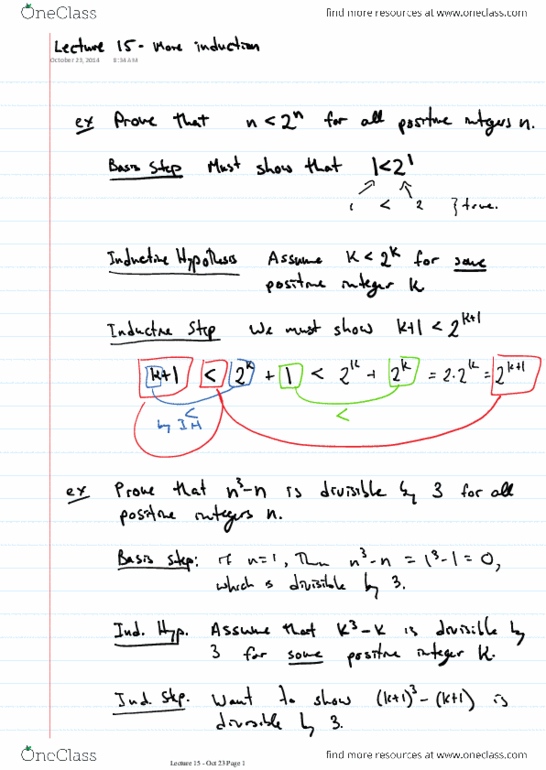 OneClass
find more resources at www.oneclass.com
Lecture 15 - More induction
October 23, 2014 8:34 AM
ex Prove that n < 2^n for all positive integers n.
Basis Step Must show that 1 < 2^1
1 < 2 } true.
Inductive Hypothesis Assume k < 2^k for some
positive integer k
Inductive Step We must show k+1 < 2^{k+1}
k+1 < 2^k + 1 < 2^k + 2^k = 2·2^k = 2^{k+1}
<
by IH
<
ex Prove that n^3-n is divisible by 3 for all
positive integers n.
Basis Step: if n=1, then n^3-n = 1^3-1 = 0,
which is divisible by 3.
Ind. Hyp. Assume that k^3-k is divisible by
3 for some positive integer k.
Ind. Step. Want to show (k+1)^3-(k+1) is
divisible by 3.
Lecture 15 - Oct 23 Page 1
OneClass
find more resources at www.oneclass.com